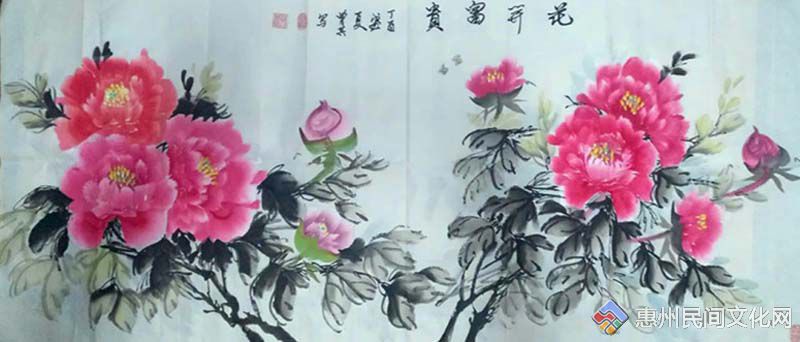 花开富貴
丁酉
盛
夏
写
惠州民间文化网